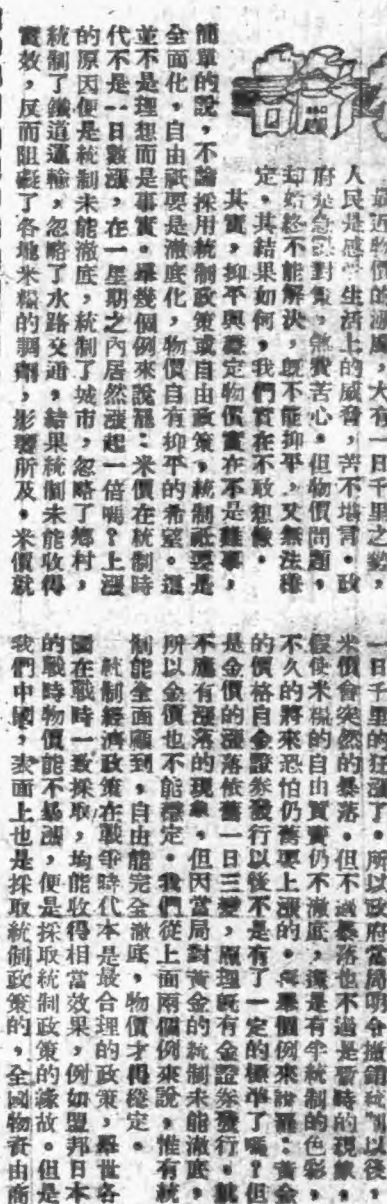 最近物價的漲風，大有一日千里之勢，
人民是感受生活上的威脅，苦不堪言。政
府是急謀對策，煞費苦心。但物價問題，
却始終不能解決，既不能抑平，又無法穩
定，其結果如何，我們實在不敢想像。
其實，抑平與穩定物價實在不是難事，
簡單的說，不論採用統制政策或自由政策，統制祇要是
全面化，自由祇要是澈底化，物價自有抑平的希望。這
並不是理想而是事實。舉幾個例來說罷：米價在統制時
代不是一日數漲，在一星期之內居然漲起一倍嗎？上漲
的原因便是統制未能澈底，統制了城市，忽略了鄉村，
統制了鐵道運輸，忽略了水路交通，結果統制未能收得
實效，反而阻礙了各地米糧的調劑，影響所及，米價就
一日千里的狂漲了。所以政府當局明令撤銷統制以後，
米價會突然的暴落。但不過暴落也不過是暫時的現象，
假使米糧的自由買賣仍不澈底，還是有半統制的色彩，
不久的將來恐怕仍舊要上漲的。再舉個例來說罷：黃金
的價格自金證券發行以後不是有了一定的標準了嗎？但
是金價的漲落依舊一日三變，照理既有金證券發行，就
不應有漲落的現象，但因當局對黃金的統制未能澈底，
所以金價也不能穩定。我們從上面兩個例來說，惟有統
制能全面顧到，自由能完全澈底，物價才得穩定。
統制經濟政策在戰爭時代本是最合理的政策，舉世各
國在戰時一致採取，均能收得相當效果，例如盟邦日本
的戰時物價能不暴漲，便是採取統制政策的緣故。但是
我們中國，表面上也是採取統制政策的，全國物資由商